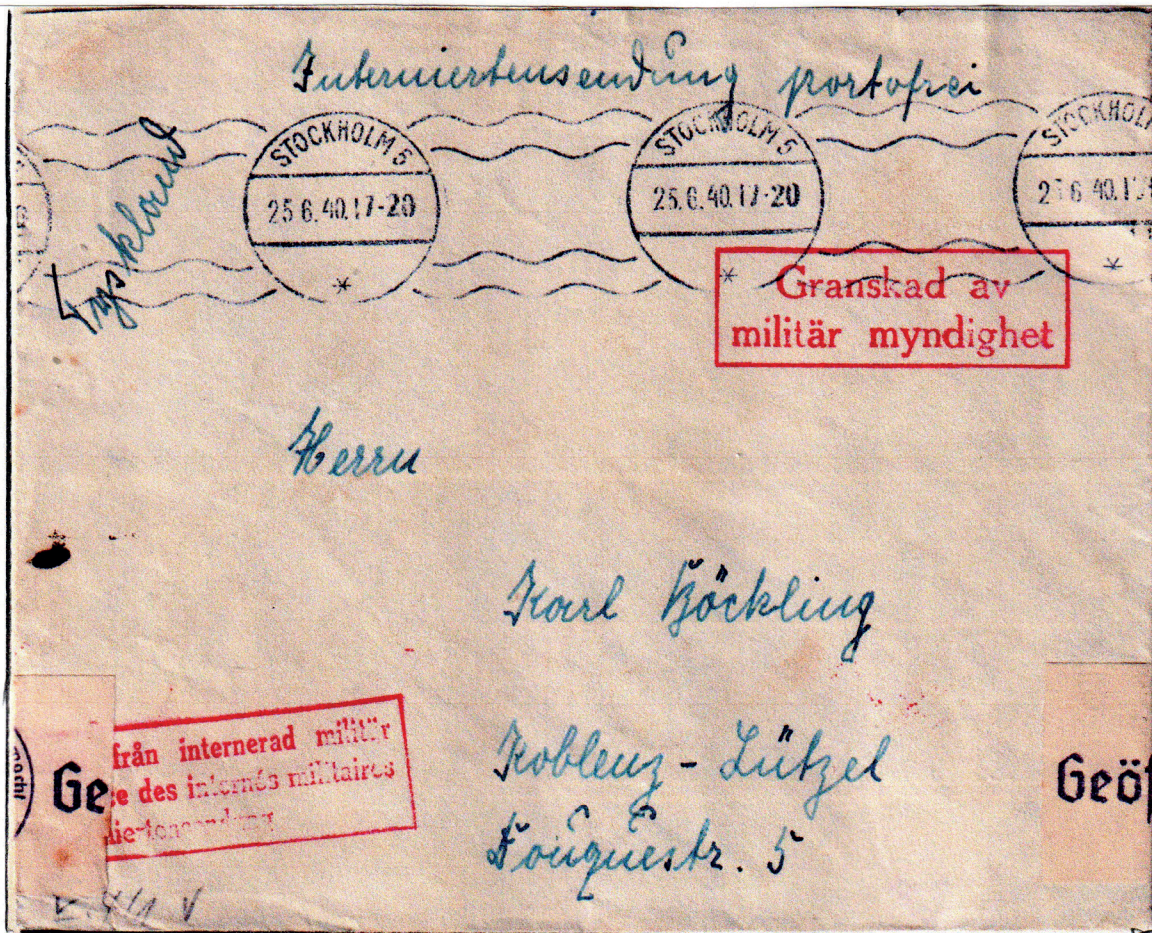 Interniertensendung portofrei
Tyskland
STOCKHOLM 5
25 6.40.17-20
STOCKHOLM 5
25.6.40.17-20
STOCKHOLM
6 40.1
Granskad av
militär myndighet
Herrn
Karl Böckling
Koblenz - Lützel
Fouquéstr. 5
från internerad militär
e des internés militaires
Ge
Geöf